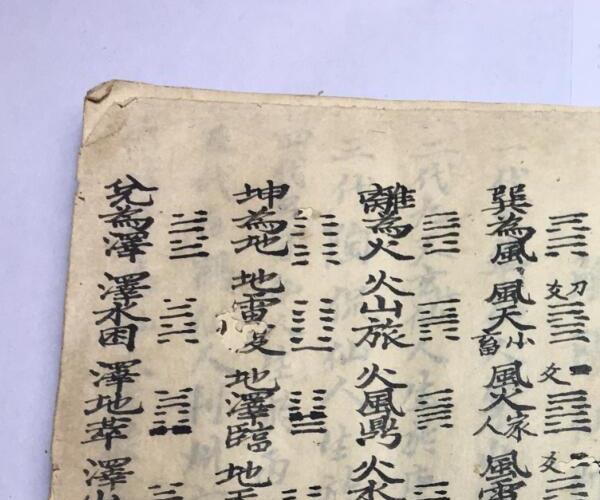 巽為風
風天小畜
风火家人
風
離為火
火山旅
火風鼎
火水
坤為地
地雷復
地澤臨
地
兌為澤
澤水困
澤地萃
澤山